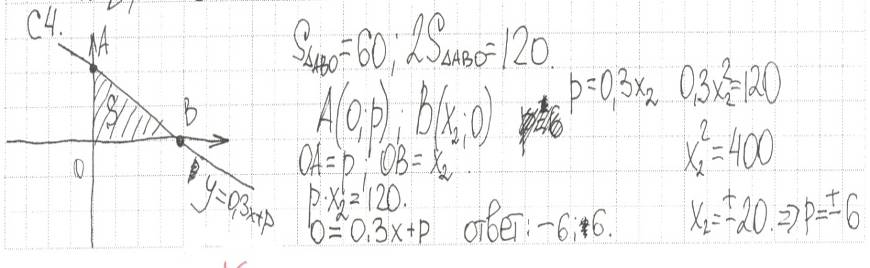 C4.
A
S
B
O
y=0,3x+p
S△ABO=60; 2S△ABO=120.
A(0;p); B(x₂;0)
OA=p; OB=x₂.
p·x₂=120.
0=0,3x+p
p=0,3x₂ 0,3x₂²=120
x₂²=400
x₂=±20.⇒p=±6
ответ: -6; 6.